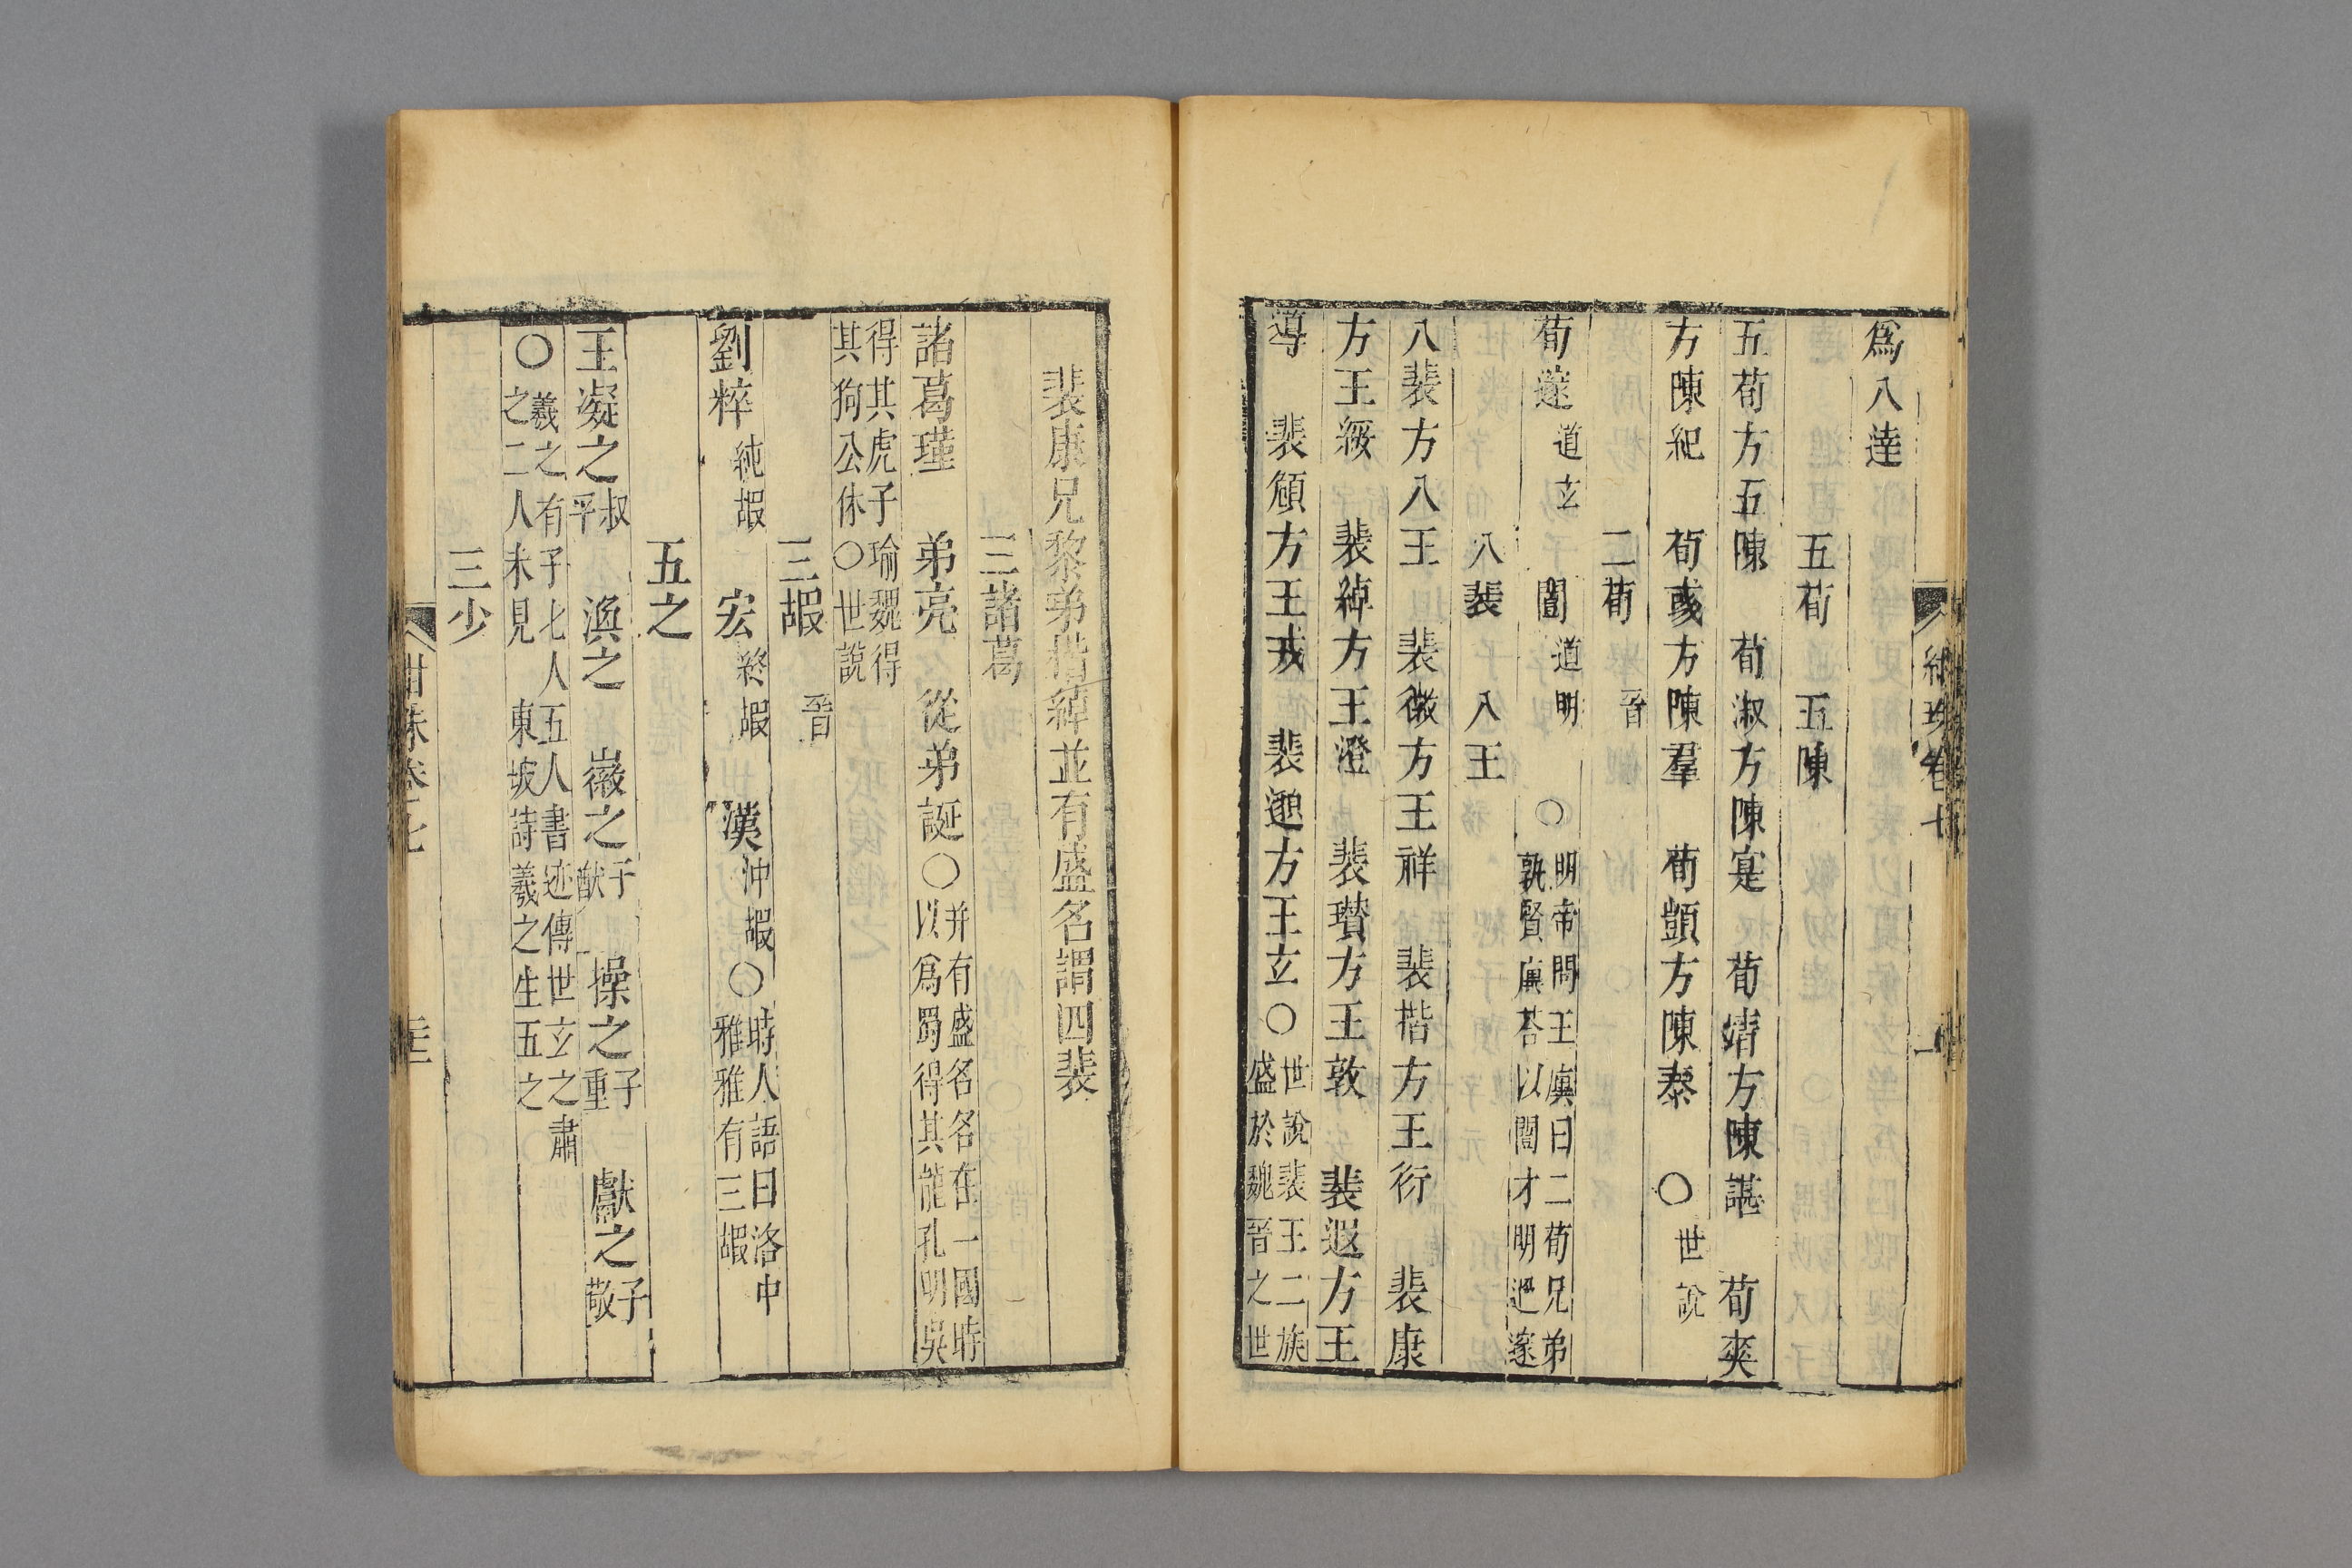 爲八達
五荀 五陳
五荀方五陳 荀淑方陳寔 荀靖方陳諶 荀爽
方陳紀 荀彧方陳羣 荀顗方陳泰 〇世說
二荀 晉
荀邃 道玄 闓 道明 〇明帝問王廙曰二荀兄弟
孰賢廙荅以闓才明過邃
八裴 八王
八裴方八王 裴徽方王祥 裴楷方王衍 裴康
方王綏 裴綽方王澄 裴瓚方王敦 裴遐方王
導 裴頠方王戎 裴邈方王玄〇世說裴王二族
盛於魏晉之世
裴康兄黎弟楷綽並有盛名謂四裴
三諸葛
諸葛瑾 弟亮 從弟誕〇并有盛名各在一國時
以爲蜀得其龍孔明吳
得其虎子瑜魏得
其狗公休〇世說
三嘏 晉
劉粹 純嘏 宏 終嘏 漢 沖嘏〇時人語曰洛中
雅雅有三嘏
五之
王凝之 叔平 渙之 徽之 子猷 操之 子重 獻之 子敬
〇羲之有子七人五人書迹傳世玄之肅
之二人未見 東坡詩羲之生五之
三少